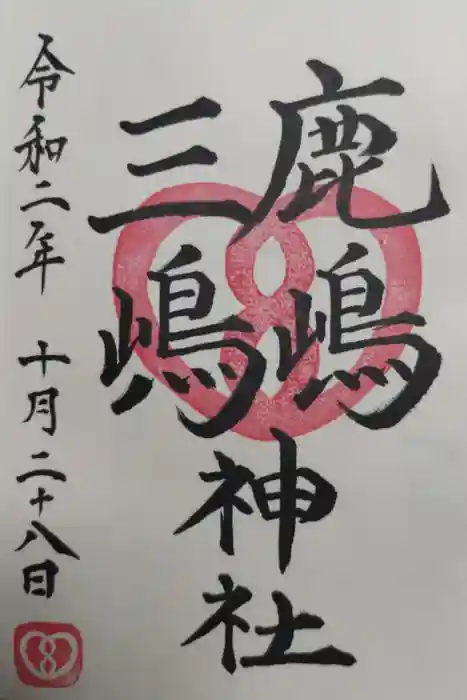 鹿嶋
三嶋
神社
令和二年 十月二十八日